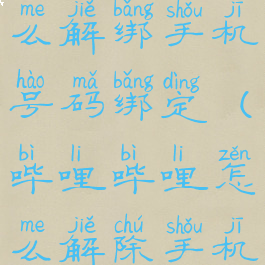 me jiě bǎng shǒu jī
么解绑手机
hào mǎ bǎng dìng
号码绑定（
bì li bì li zěn
哔哩哔哩怎
me jiě chú shǒu jī
么解除手机